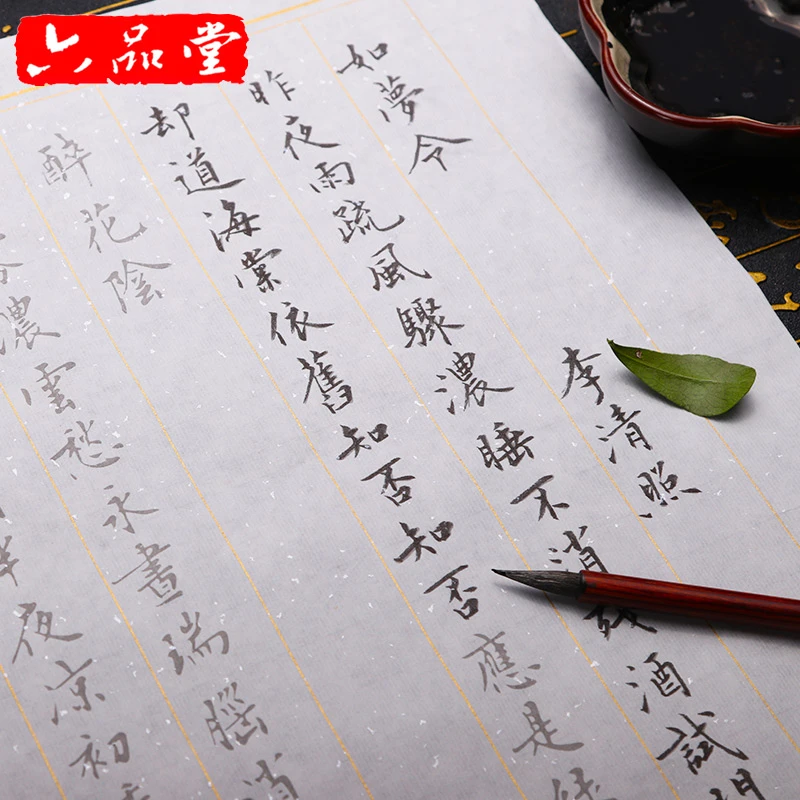 六品堂
如夢令
李清照
昨夜雨疏風驟濃睡不消殘酒試問
却道海棠依舊知否知否應是綠
醉花陰
濃雲愁永晝瑞腦消
半夜涼初